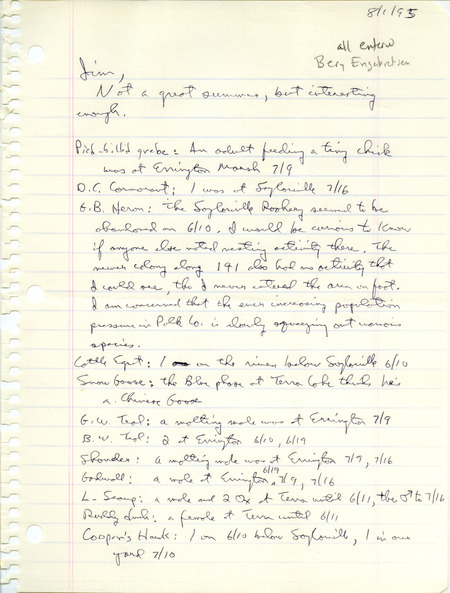 8/1/95
all entered
Bery Engebretsen
Jim,
Not a great summer, but interesting
enough.
Pied-billed grebe: An adult feeding a tiny chick
was at Errington Marsh 7/9
D.C. Cormorant; 1 was at Saylorville 7/16
G.B. Heron: The Saylorville Rookery seemed to be
abandoned on 6/10. I would be curious to know
if anyone else noted nesting activity there. The
newer colony along 141 also had no activity that
I could see, tho I never entered the area on foot.
I am concerned that the ever increasing population
pressure in Polk Co. is slowly squeezing out various
species.
Cattle Egret: 1 on the river below Saylorville 6/10
Snow Goose: the Blue phase at Terra Lake thinks he's
a Chinese Goose
G.W. Teal: a molting male was at Errington 7/9
B.W. Teal: 2 at Errington 6/10, 6/19
Shoveler: a molting male was at Errington 7/9, 7/16
Gadwall: a male at Errington 6/19, 7/9, 7/16
L. Scaup: a male and 2 ♀s at Terra until 6/11, the ♂ to 7/16
Ruddy duck: a female at Terra until 6/11
Cooper's Hawk: 1 on 6/10 below Saylorville, 1 in our
yard 7/10